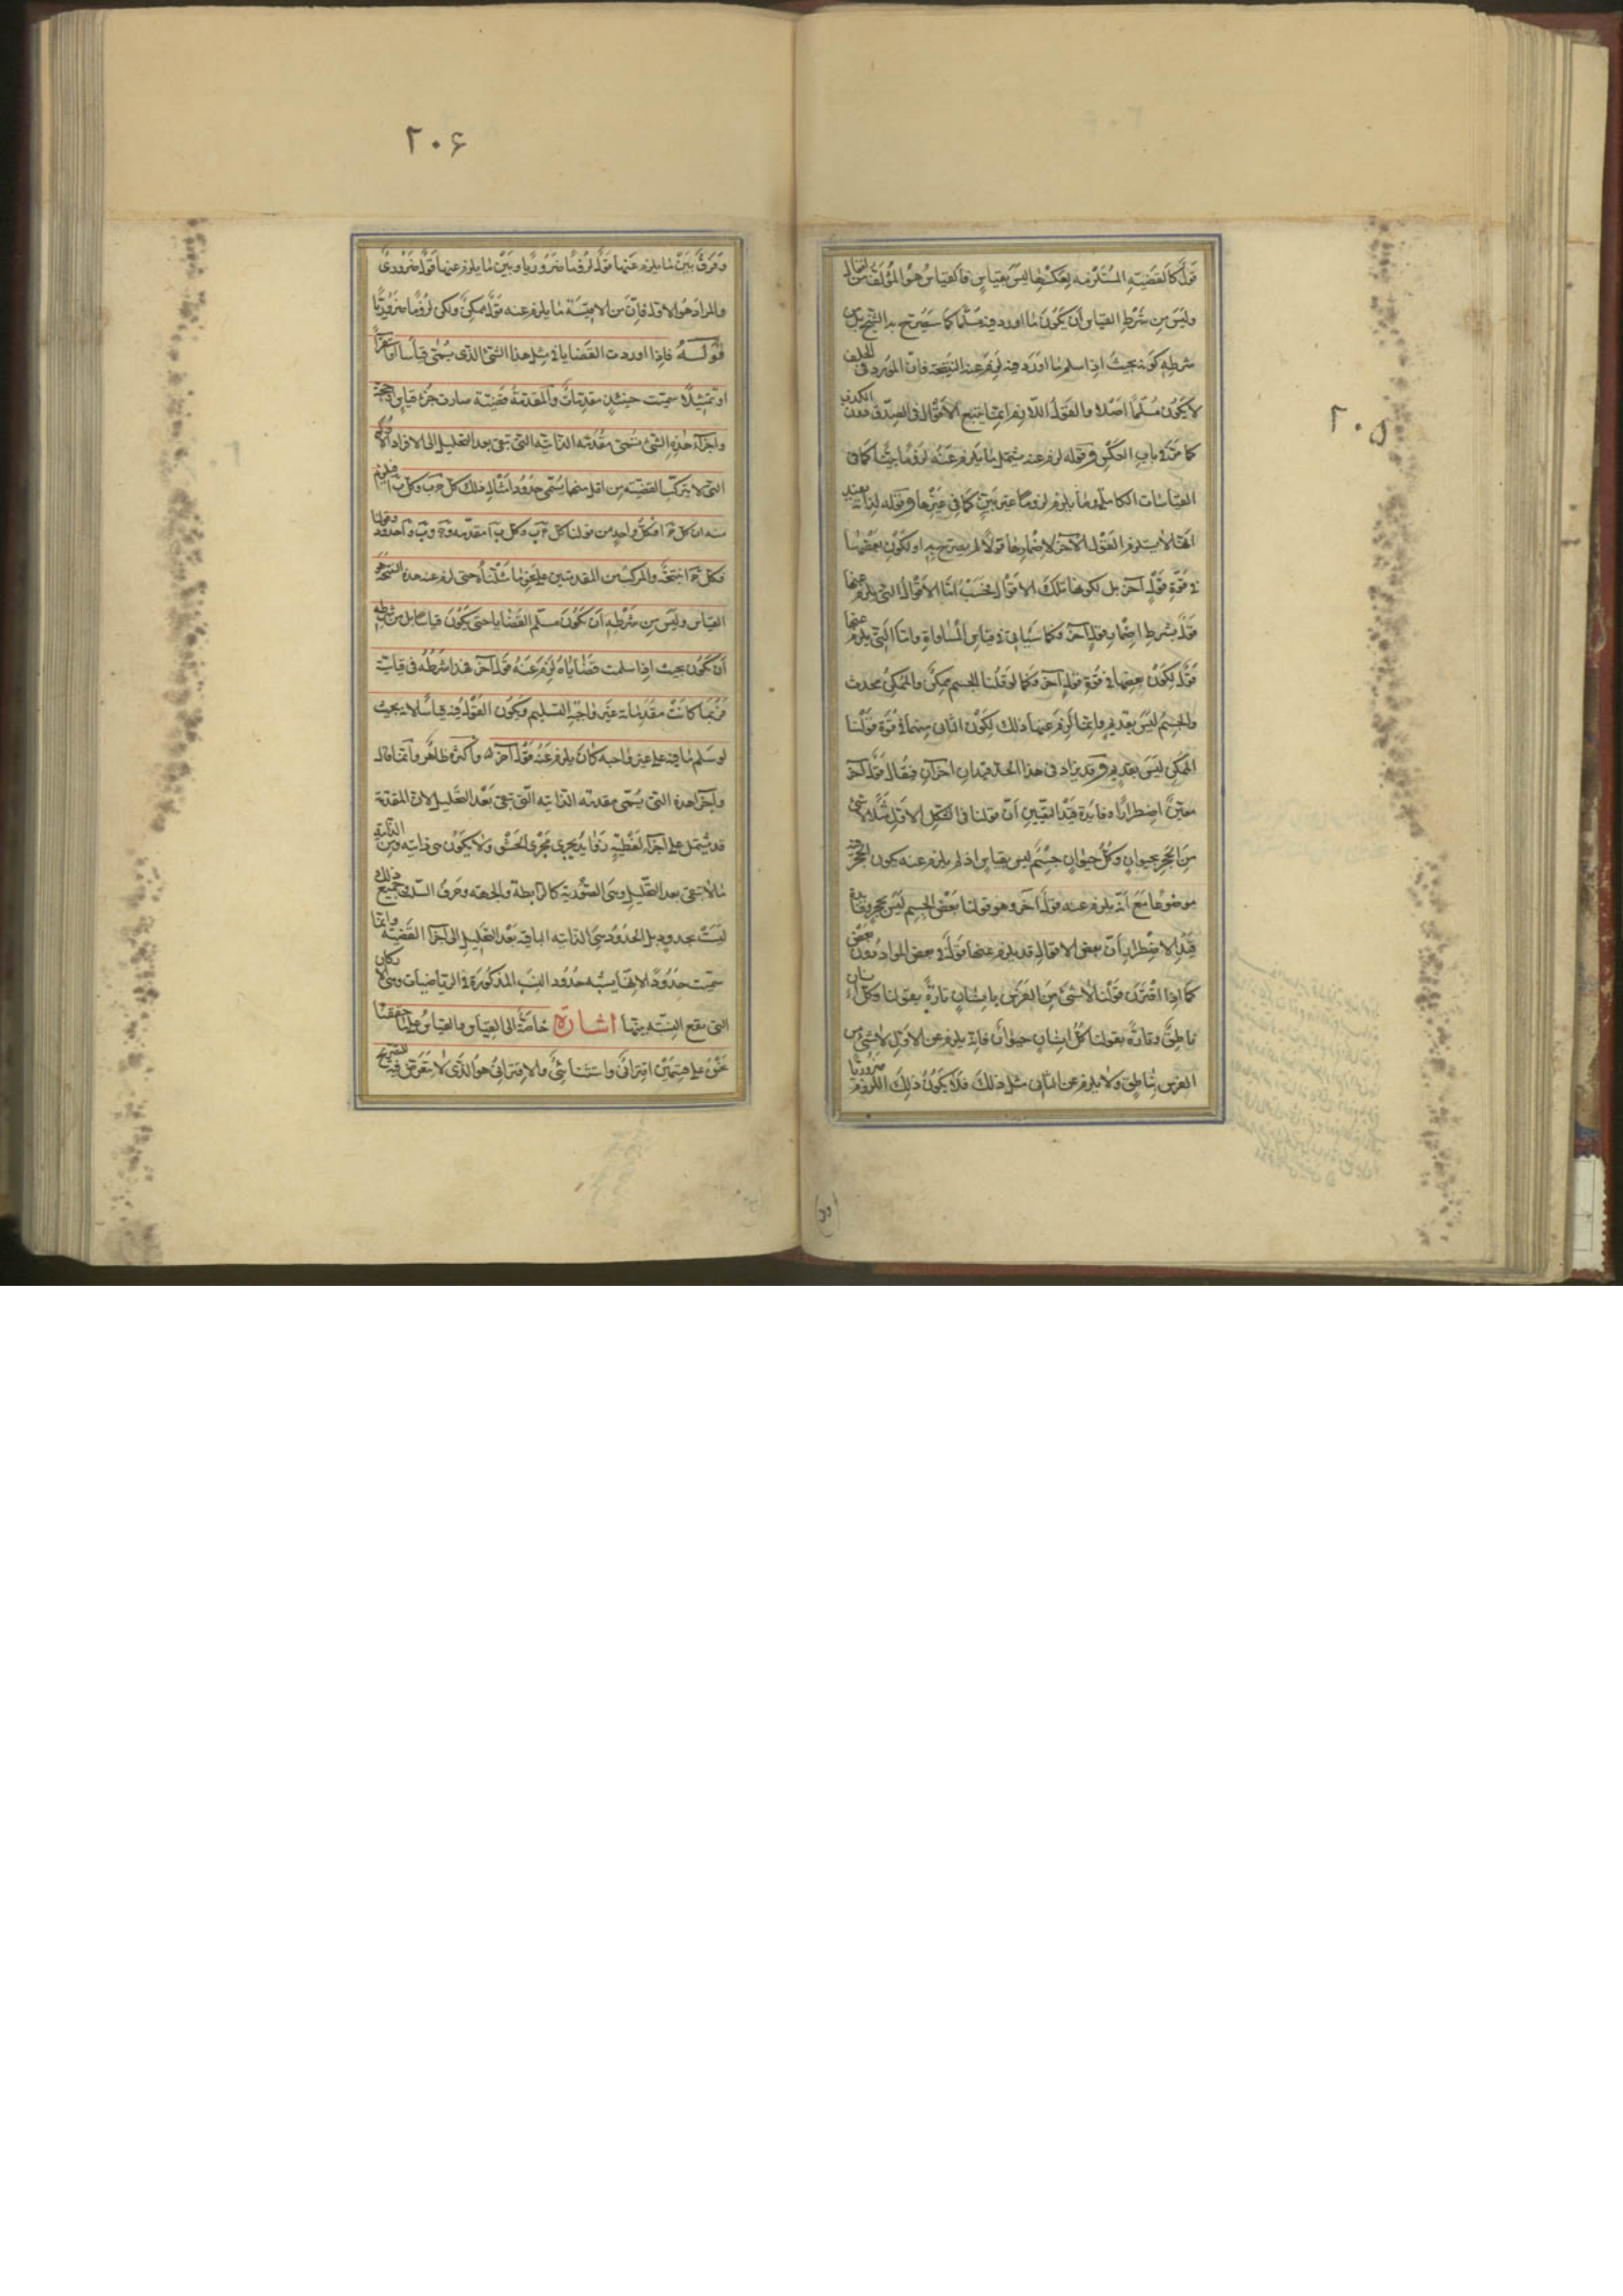 ۲۰۵
قولا كالقضية المستلزمة لعكسها ليس بقياس فالقياس هو المؤلف من اقوال
وليس من شرط القياس ان يكون ما اورد فيه مسلما كما سيصرح به الشيخ بل من
شرطه كونه بحيث اذا سلم ما اورد فيه لزم عنه النتيجة فان المورد في الخلف
لا يكون مسلما اصلا والقول اللازم انما يتبع الاقوال في الصدق دون الكذب
كما مر في باب العكس وقوله لزم عنه يشمل ما يلزم عنه لزوما بينا كما في
القياسات الكاملة وما يلزم لزوما غير بين كما في غيرها وقوله لذاته يفيد
انها لا يستلزم القول الآخر لاضمارها قولا لم يصرح به او لكون بعضها
في قوة قول آخر بل لكونها تلك الاقوال فحسب اما الاقوال التي يلزم عنها
قول بشرط اضمار قول آخر فكما سيأتي في قياس المساواة واما التي يلزم عنها
قول لكون بعضها في قوة قول آخر فكما لو قلنا الجسم ممكن والممكن محدث
والجسم ليس بقديم وانما لزم عنها ذلك لكون الثاني منهما في قوة قولنا
الممكن ليس بقديم وقد يزاد في هذا الحد قيدان اخران فيقال قول آخر
معين اضطرارا وفائدة قيد التعيين ان قولنا في الشكل الاول مثلا لا شئ
من الحجر بحيوان وكل حيوان جسم ليس بقياس اذ لم يلزم عنه يكون الحجر فيه
موضوعا مع انه يلزم عنه قول آخر وهو قولنا بعض الجسم ليس بحجر وفائدة
قيد الاضطرار ان بعض الاقوال قد يلزم عنها قول في بعض المواد دون بعض
كما اذا اقترن قولنا لا شئ من الفرس بانسان تارة بقولنا وكل انسان
ناطق وتارة بقولنا كل انسان حيوان فانه يلزم عن الاول لا شئ من
الفرس بناطق ولا يلزم عن الثاني مثل ذلك فلا يكون ذلك اللزوم ضروريا
۲۰۶
وفرق بين ما يلزم عنها قول لزوما ضروريا وبين ما يلزم عنها قول ضروري
والمراد هو الاول فان من الاقيسة ما يلزم عنه قول ممكن ولكن لزوما ضروريا
قوله فاذا اوردت القضايا في مثل هذا الشئ الذي يسمى قياسا او استقراء
او تمثيلا سميت حينئذ مقدمات والمقدمة قضية صارت جزء قياس او حجة
واجزاء هذه التي تسمى مقدمة الذاتية التي تبقى بعد التحليل الى الافراد الاول
التي لا يتركب القضية من اقل منها يسمى حدودا مثال ذلك كل ج ب وكل ب ا فيلزم
منه ان كل ج ا فكل واحد من قولنا كل ج ب وكل ب ا مقدمة وج وب وا حدود وقولنا
فكل ج ا نتيجة والمركب من المقدمتين على نحو ما مثلناه حتى لزم عنه هذه النتيجة هو
القياس وليس من شرطه ان يكون مسلم القضايا حتى يكون قياسا بل من شرطه
ان يكون بحيث اذا سلمت قضاياه لزم عنه قول آخر فهذا شرطه في قياسيته
فربما كانت مقدماته غير واجبة التسليم ويكون القول فيه قياسا لانه بحيث
لو سلم ما فيه على غير واجبه كان يلزم عنه قول آخر ه واكثره ظاهر وانما قال
واجزاء هذه التي يسمى مقدمة الذاتية التي تبقى بعد التحليل لان المقدمة
قد يشتمل على اجزاء لفظية زوائد يجري مجرى الحشو ولا يكون هي ذاتية ومن الذاتية
ما لا تبقى بعد التحليل وهي الصورية كالرابطة والجهة وحرف السلب فجميع ذلك
ليست بحدود بل الحدود هي الذاتية الباقية بعد التحليل الى اجزاء القضية وانما
سميت حدودا لانها يشبه حدود النسب المذكورة في الرياضيات وهي الاركان
التي يقع النسبة بينها اشارة خاصة الى القياس والقياس على ما حققنا
نحن على قسمين اقتراني واستثنائي والاقتراني هو الذي لا يتعرض فيه للتصريح